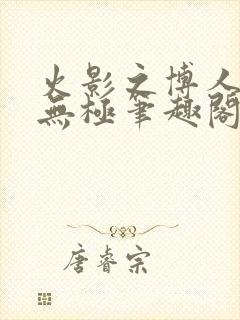 火影之博人
無極筆趣閣
唐睿宗